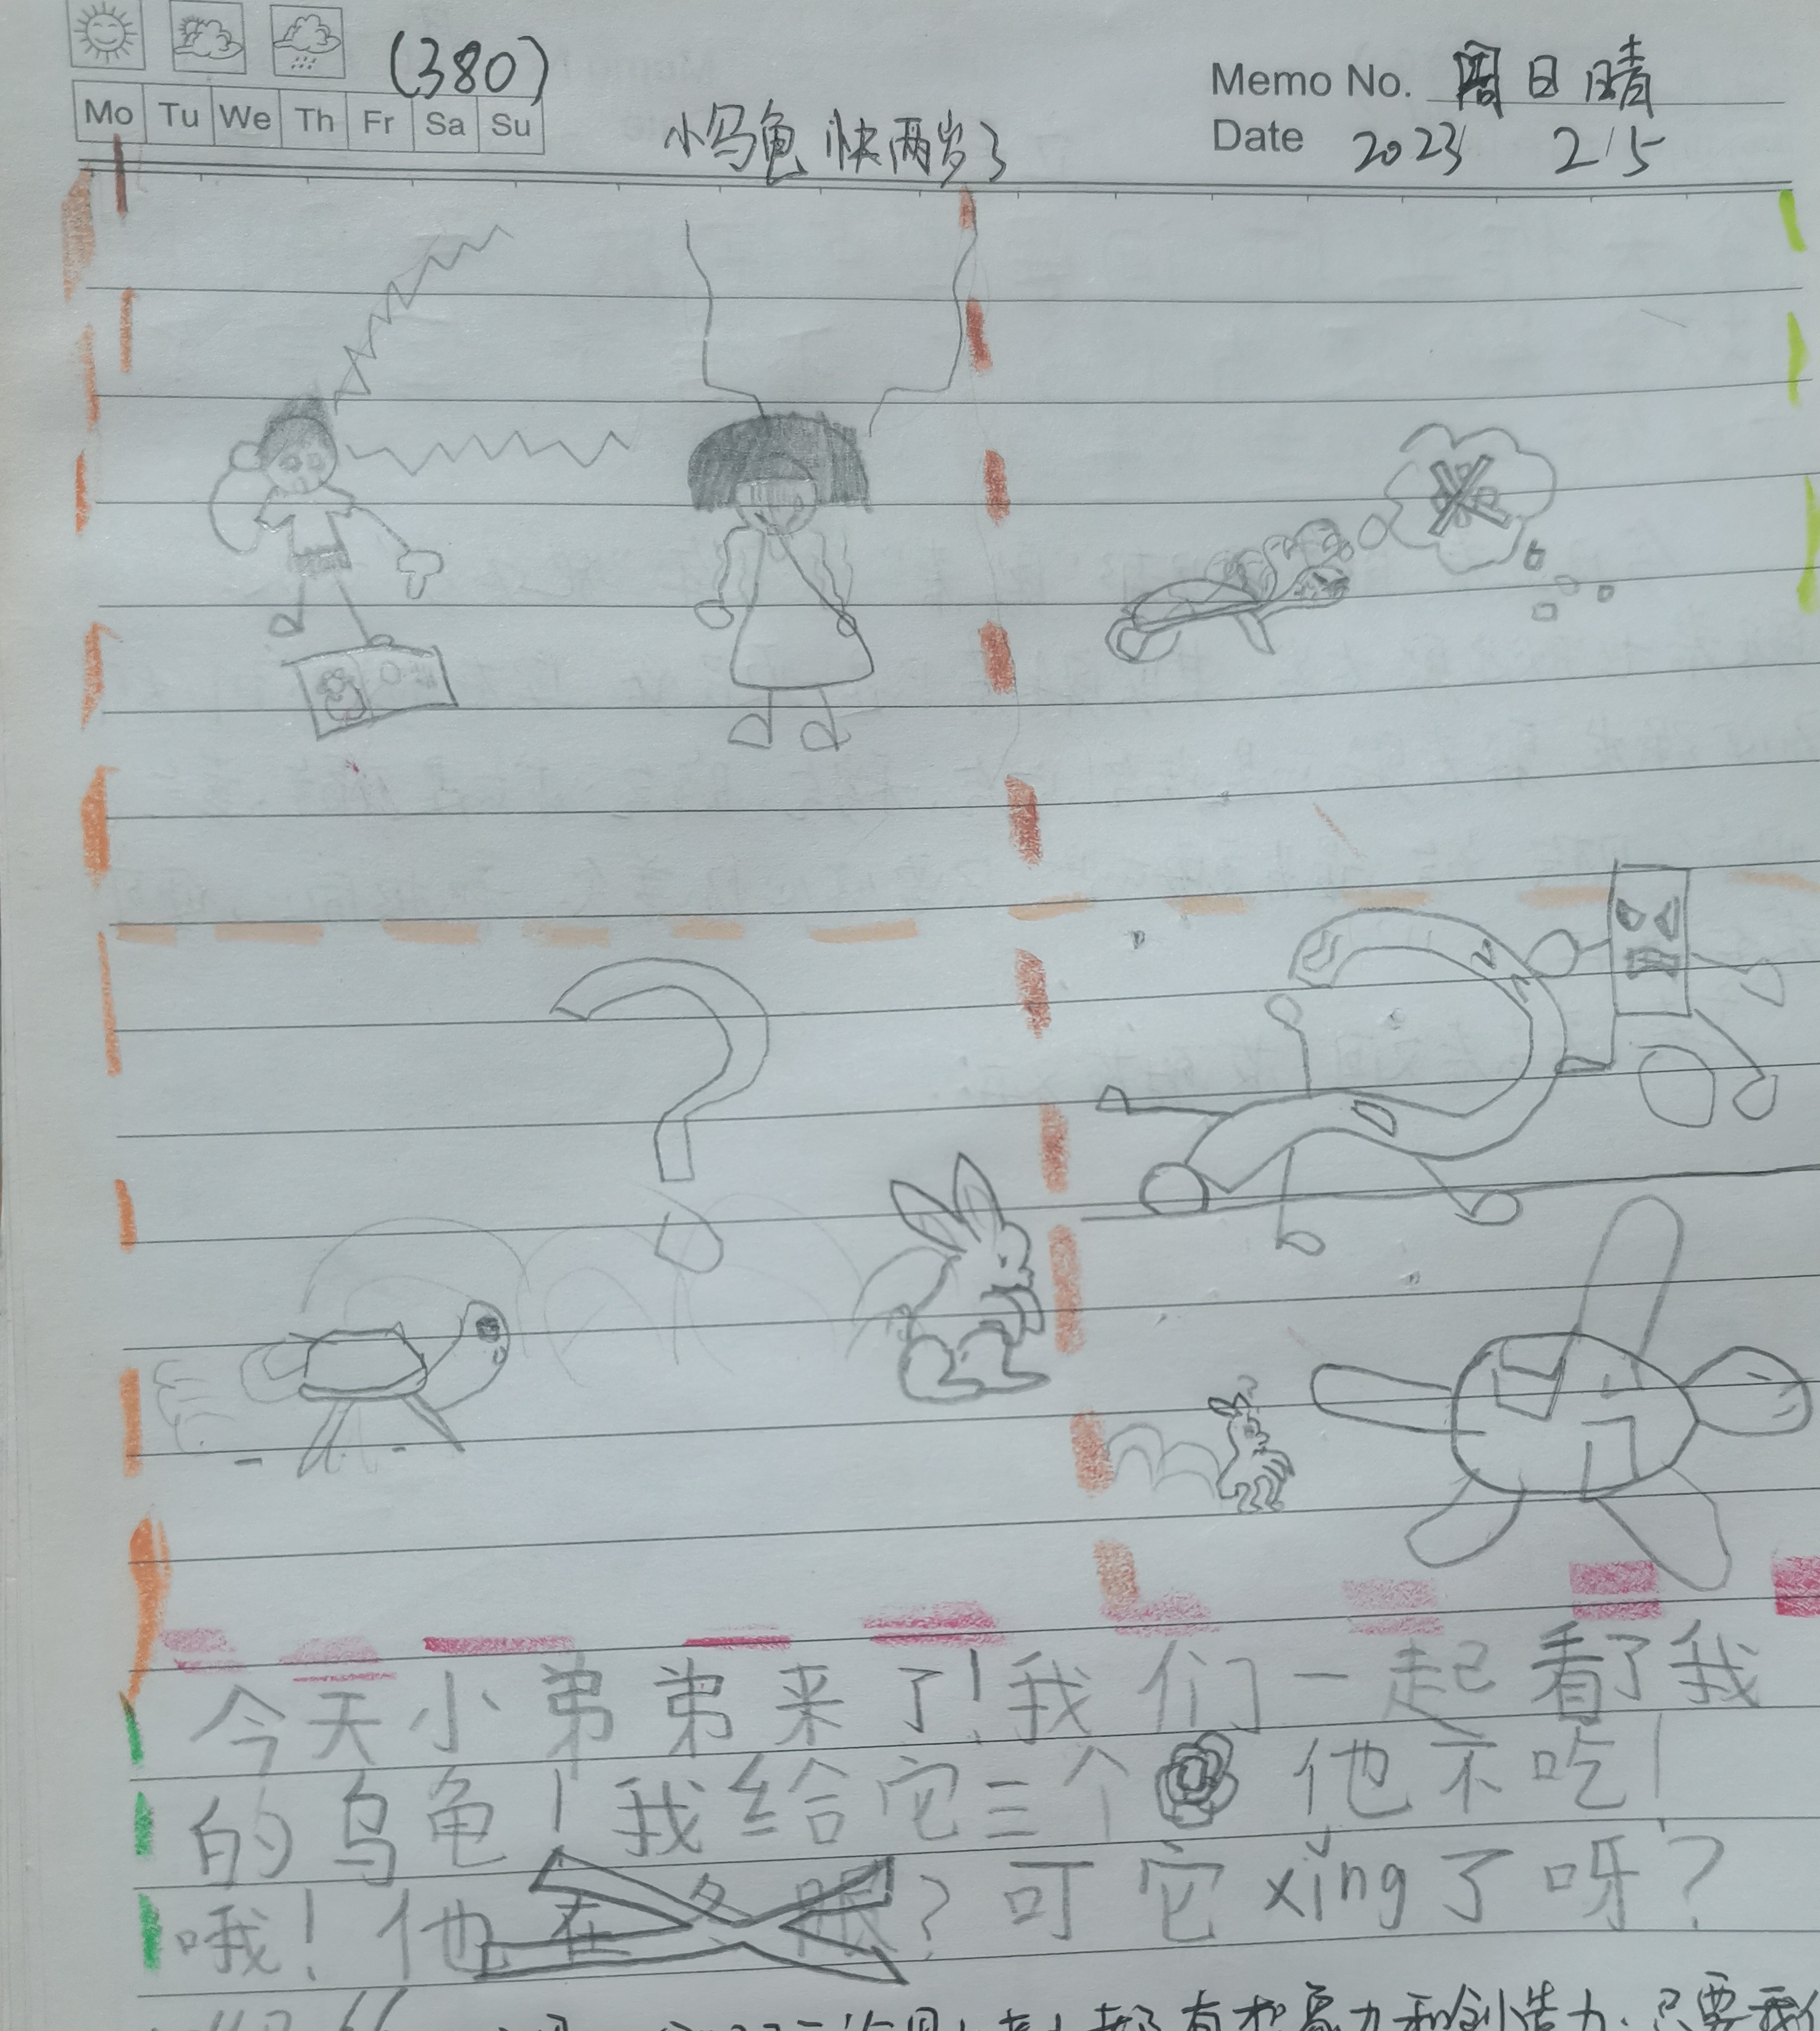 (380)
Memo No. 周日晴
Mo Tu We Th Fr Sa Su
Date 2023 2/5
小乌龟快两岁了
今天小弟弟来了!我们一起看了我
的乌龟!我给它三个 他不吃!
哦!他在冬眠?可它xǐng了呀?
都有想象力和创造力,只要我们